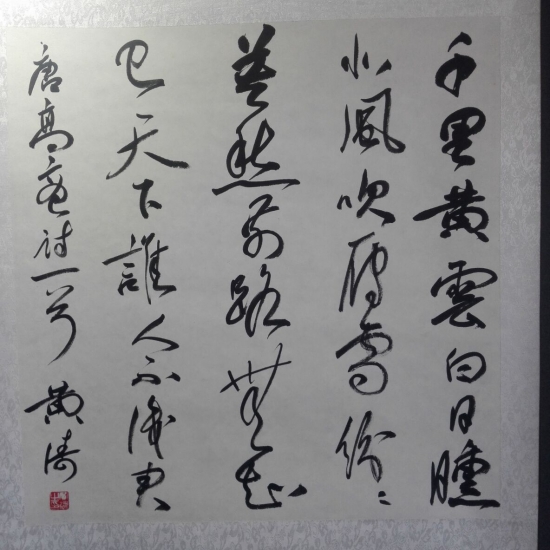 千里黄雲白日曛
北風吹雁雪紛〻
莫愁前路無知
己天下誰人不識君
唐高適詩一首 黄